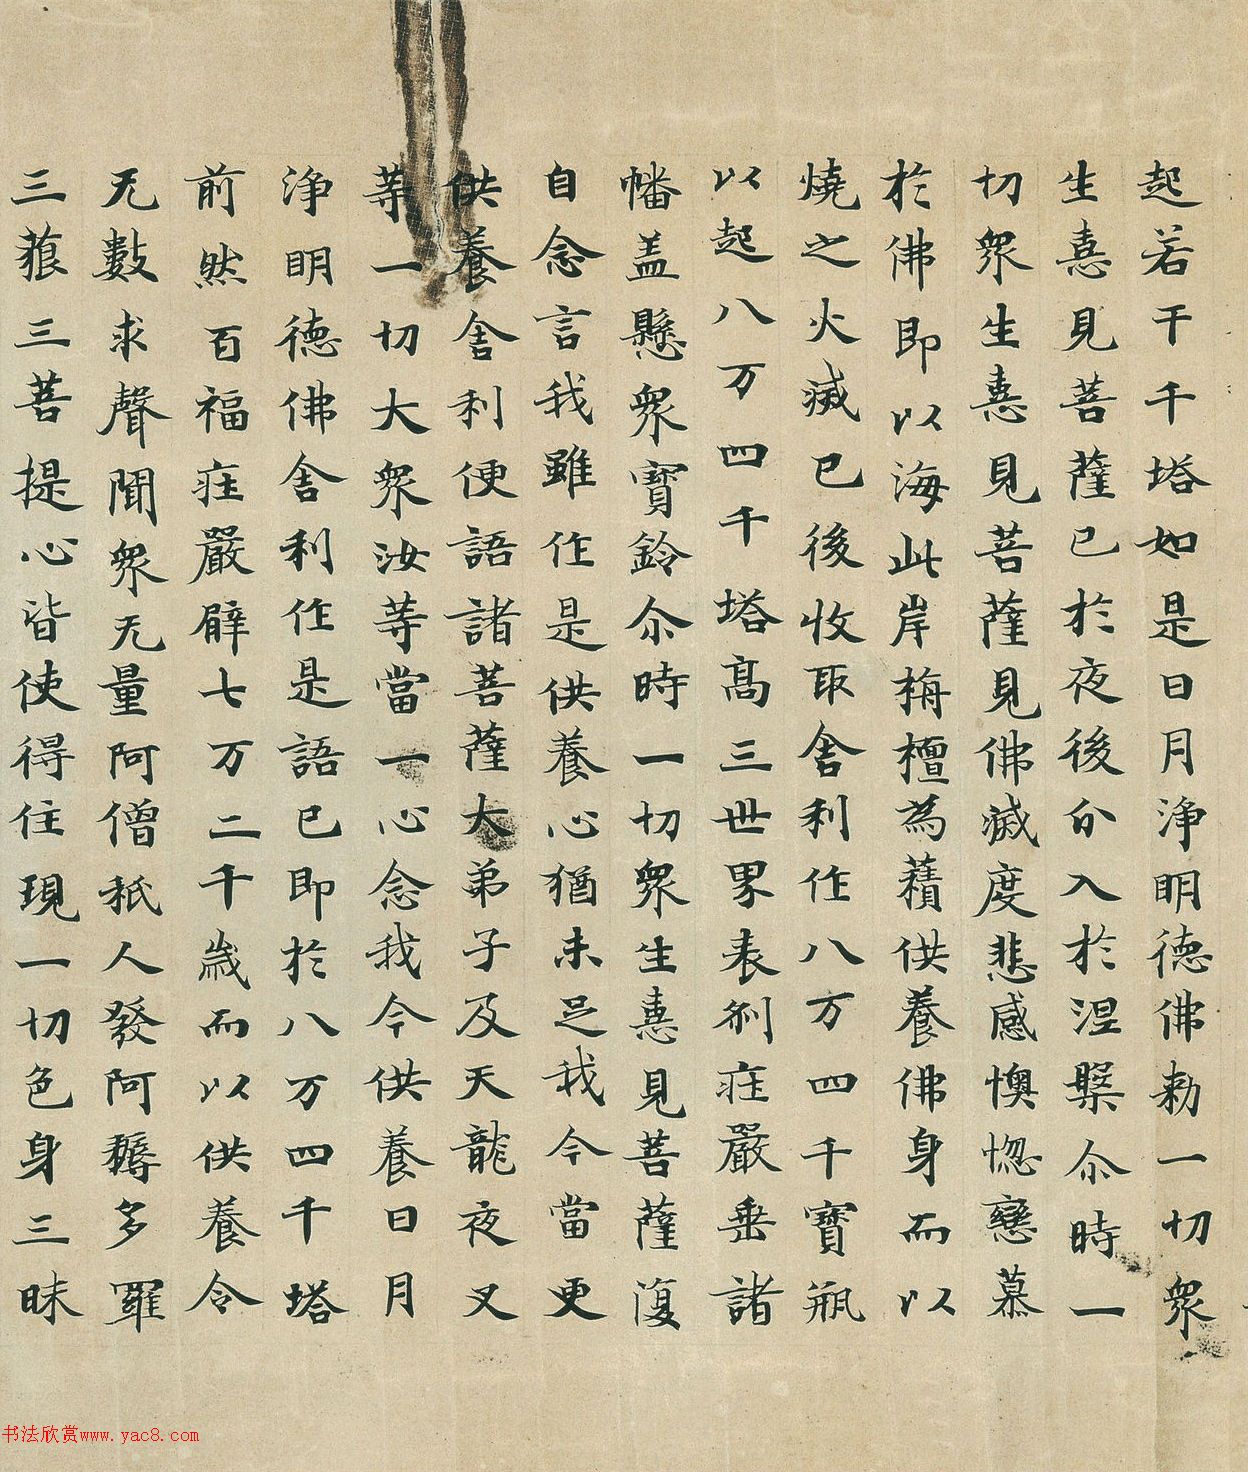 起若干千塔如是日月浄明德佛勑一切衆
生憙見菩薩已於夜後分入於涅槃尒時一
切衆生憙見菩薩見佛滅度悲感懊惚戀慕
於佛即以海此岸栴檀為䕆供養佛身而以
燒之火滅已後收取舎利作八万四千寶瓶
以起八万四千塔髙三世界表刹莊嚴垂諸
幡盖懸衆寶鈴尒時一切衆生憙見菩薩復
自念言我雖作是供養心猶未足我今當更
供養舎利便語諸菩薩大弟子及天龍夜叉
等一切大衆汝等當一心念我今供養日月
浄明德佛舎利作是語已即於八万四千塔
前然百福莊嚴臂七万二千歳而以供養令
无數求聲聞衆无量阿僧祇人發阿耨多羅
三藐三菩提心皆使得住現一切色身三昧
书法欣赏www.yac8.com